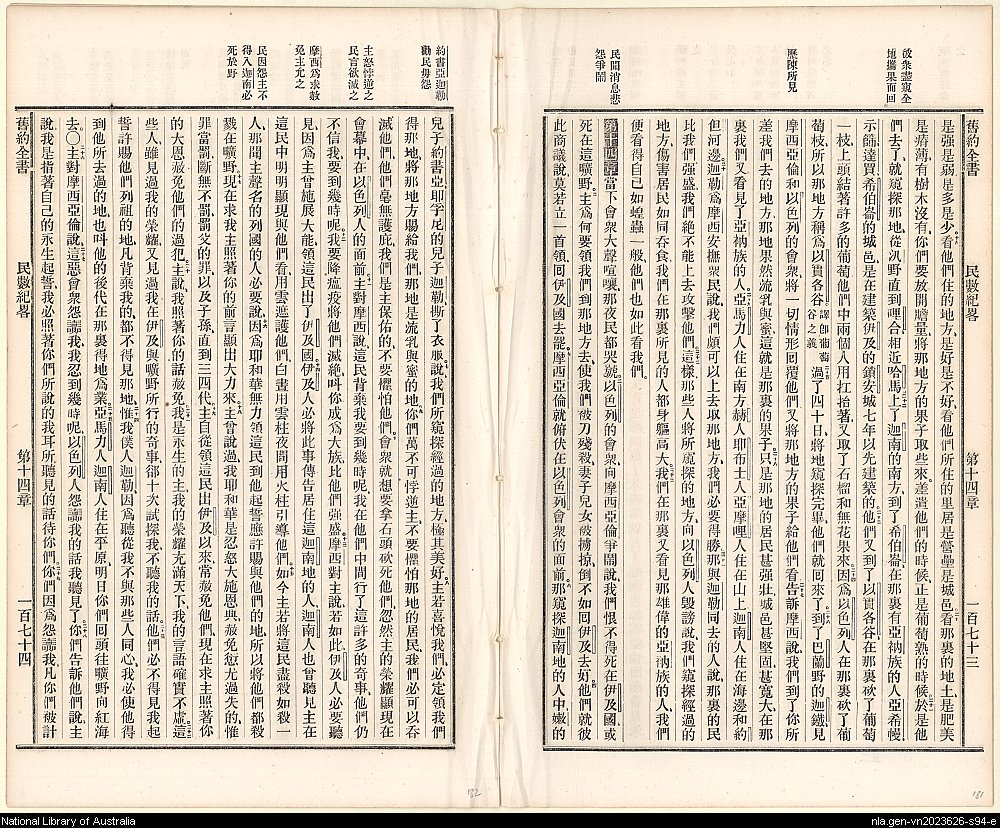 舊約全書 民數紀畧 第十四章 一百七十三
彼衆盡窺全
地攜果而回
歷陳所見
民聞消息悲
怨爭鬧
是强是弱是多是少看他們住的地方是好是不好看他們所住的里居是營壘是城邑看那裏的地土是肥美
是瘠薄有樹木沒有你們要放開膽量將那地方的果子取些來差遣他們的時候正是葡萄熟的時候於是他
們去了就窺探那地從汛野直到哩合相近哈馬上了迦南的南方到了希伯崙在那裏有亞衲族的人亞希幔
示篩達買希伯崙的城邑是在建築伊及的鎖安城七年以先建築的他們又到了以實各谷在那裏砍了葡萄
一枝上頭結著許多的葡萄他們中兩個人用杠抬著又取了石榴和無花果來因爲以色列人在那裏砍了葡
萄枝所以那地方稱爲以實各谷譯卽葡萄谷之義過了四十日將地窺探完畢他們就囘來了到了巴蘭野的迦鐵見
摩西亞倫和以色列的會衆將一切情形囘覆他們又將那地方的果子給他們看告訴摩西說我們到了你所
差我們去的地方那地果然流乳與蜜這就是那裏的果子只是那地的居民甚强壯城邑甚堅固甚寬大在那
裏我們又看見了亞衲族的人亞馬力人住在南方赫人耶布士人亞摩哩人住在山上迦南人住在海邊和約
但河邊迦勒爲摩西安撫衆民說我們頗可以上去取那地方我們必要得勝那與迦勒同去的人說那裏的民
比我們强盛我們絕不能上去攻擊他們這樣那些人將所窺探的地方向以色列人毀謗說我們窺探經過的
地方傷害居民如同吞食我們在那裏所見的人都身軀高大我們在那裏又看見那雄偉的亞衲族的人我們
便看得自己如蝗蟲一般他們也如此看我們
第十四章當下會衆大聲喧嚷那夜民都哭號以色列的會衆向摩西亞倫爭鬧說我們恨不得死在伊及國或
死在這曠野主爲何要領我們到那地方去使我們被刀殘殺妻子兒女被擄掠倒不如囘伊及去好他們就彼
此商議說莫若立一首領囘伊及國去罷摩西亞倫就俯伏在以色列會衆的面前那窺探迦南地的人中嫩的
約書亞迦勒
勸民毋怨
主怒悖逆之
民言欲滅之
摩西爲求赦
免主允之
民因怨主不
得入迦南必
死於野
兒子約書亞耶孚尼的兒子迦勒撕了衣服說我們所窺探經過的地方極其美好主若喜悅我們必定領我們
得那地將那地方賜給我們那地是流乳與蜜的地你們萬不可悖逆主不要懼怕那地的居民我們必可以吞
滅他們他們毫無護庇我們是主保佑的不要懼怕他們會衆就想要拿石頭砍死他們忽然主的榮耀顯現在
會幕中在以色列人的面前主對摩西說這民背棄我要到幾時呢我在他們中間行了這許多的奇事他們仍
不信我要到幾時呢我要降瘟疫將他們滅絕叫你成爲大族比他們强盛摩西對主說若如此伊及人必要聽
見因爲主曾施展大能領這民出了伊及國伊及人必將此事傳告居住這迦南地的人迦南人也曾聽見主在
這民中明明顯現與他們看用雲遮護他們白晝用雲柱夜間用火柱引導他們如今主若將這民盡殺如殺一
人那聞主聲名的列國的人必要說因爲耶和華無力領這民到他起誓應許賜與他們的地所以將他們都殺
戮在曠野現在求我主照著你的前言顯出大力來主曾說過我耶和華是忍怒大施恩典赦免愆尤過失的惟
罪當罰斷無不罰罰父的罪以及子孫直到三四代主自從領這民出伊及以來常赦免他們現在求主照著你
的大恩赦免他們的過犯主說我照著你的話赦免我是永生的主我的榮耀充滿天下我的言語確實不虛這
些人雖見過我的榮耀又見過我在伊及與曠野所行的奇事卻十次試探我不聽我的話他們必不得見我起
誓許賜他們列祖的地凡背棄我的都不得見那地惟我僕人迦勒因爲聽從我不與那些人同心我必使他得
到他所去過的地也叫他的後代在那裏得地爲業亞馬力人迦南人住在平原明日你們囘頭往曠野向紅海
去〇主對摩西亞倫說這惡會衆怨讟我我忍到幾時呢以色列人怨讟我的話我聽見了你們告訴他們說主
說我是指著自己的永生起誓我必照著你們所說的我耳所聽見的話待你們你們因爲怨讟我凡你們被計
舊約全書 民數紀畧 第十四章 一百七十四
132
131
National Library of Australia
nla.gen-vn2023626-s94-e